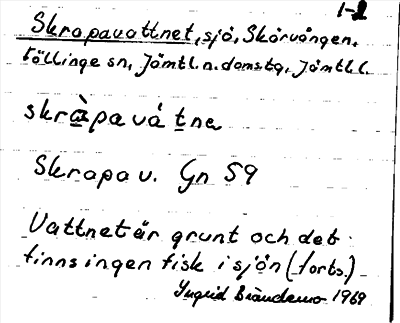 1-2
Skrapavattnet, sjö, Skärvången,
Föllinge sn, Jämtl. n. domstg, Jämtl. l.
skràpavátne
Skrapav. Gn 59
Vattnet är grunt och det
finns ingen fisk i sjön (forts.)
Ingrid Brändemo 1969